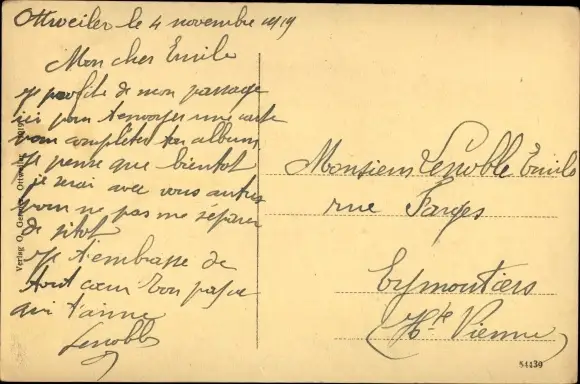 Ottweiler le 4 novembre 1919
Mon cher Emile
je profite de mon passage
ici pour t'envoyer une carte
pour compléter ton album
je pense que bientot
je serai avec vous autres
pour ne pas me séparer
de sitot
Je t'embrasse de
tout coeur ton papa
qui t'aime
Lenoble
Monsieur Lenoble Emile
rue Farges
Eymoutiers
(Hte Vienne)
Verlag O. Ottweiler
54439